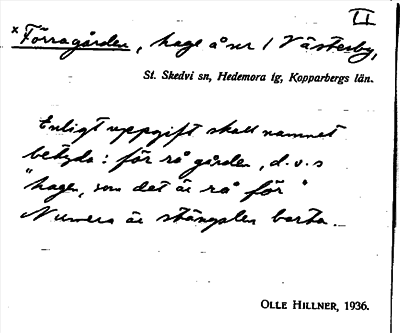 II
x Förragården, hage å nr 1 Västerby,
St. Skedvi sn, Hedemora lg, Kopparbergs län.
Enligt uppgift skall namnet
betyda: för rå gården, d.v.s
"hagen, som det är rå för"
Numera är stängslen borta.
OLLE HILLNER, 1936.